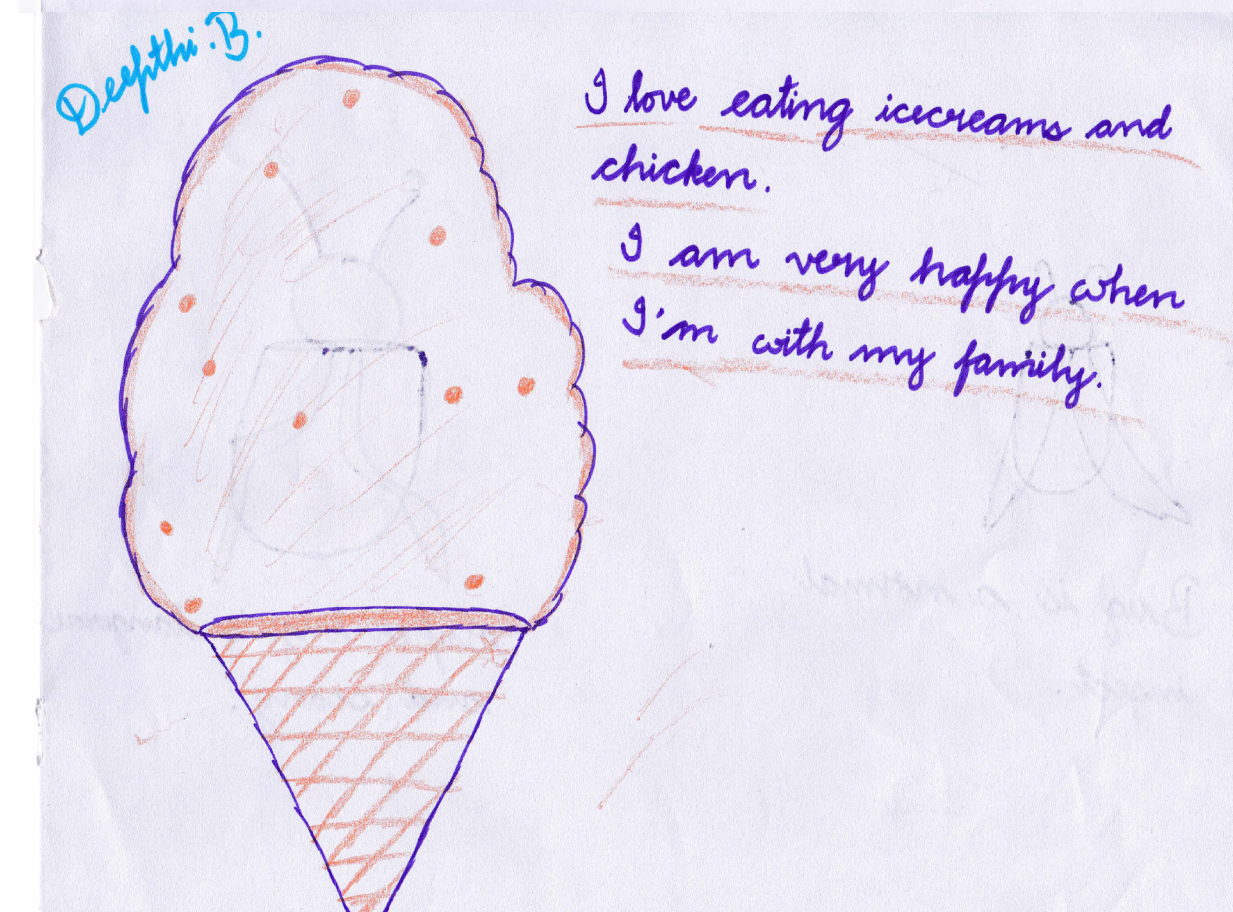 Deepthi.B.
I love eating icecreams and
chicken.
I am very happy when
I'm with my family.